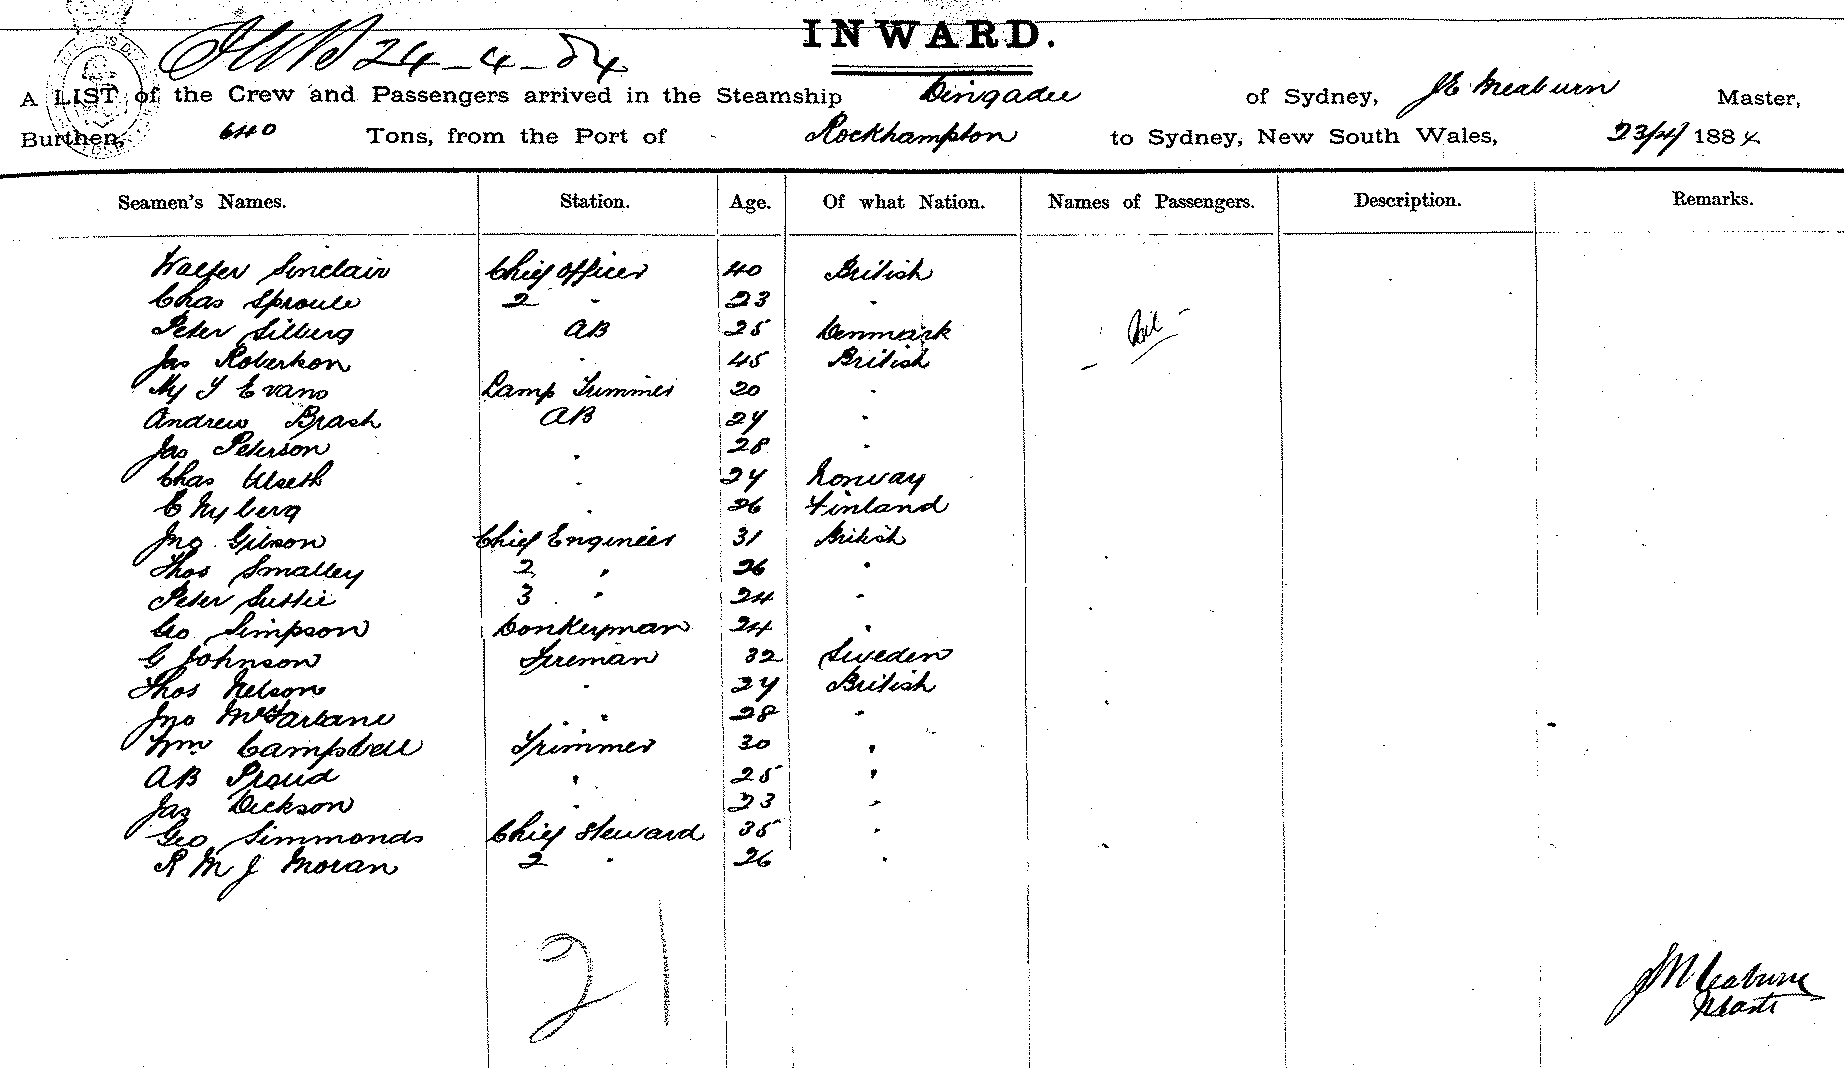 24-4-84
INWARD.
A LIST of the Crew and Passengers arrived in the Steamship Dingadee of Sydney, J E Meaburn Master,
Burthen, 640 Tons, from the Port of Rockhampton to Sydney, New South Wales, 23/4/ 1884
Seamen's Names. Station. Age. Of what Nation. Names of Passengers. Description. Remarks.
Walter Sinclair Chief Officer 40 British
Chas Sproule 2 " 23 "
Peter Silberg AB 25 Denmark
Jas Robertson " 45 British
Hy J Evans Lamp Trimmer 20 "
Andrew Brash AB 24 "
Jas Peterson " 28 "
Chas Ulseth " 24 Norway
C Nyberg " 26 Finland
Jno Gibson Chief Engineer 31 British
Thos Smalley 2 " 26 "
Peter Suttie 3 " 24 "
Geo Simpson Donkeyman 24 "
G Johnson Fireman 32 Sweden
Thos Nelson " 24 British
Jno McFarlane " 28 "
Wm Campbell Trimmer 30 "
AB Proud " 25 "
Jas Dickson " 23 "
Geo Simmonds Chief Steward 35 "
R M J Moran 2 " 26 "
21
J Meaburn